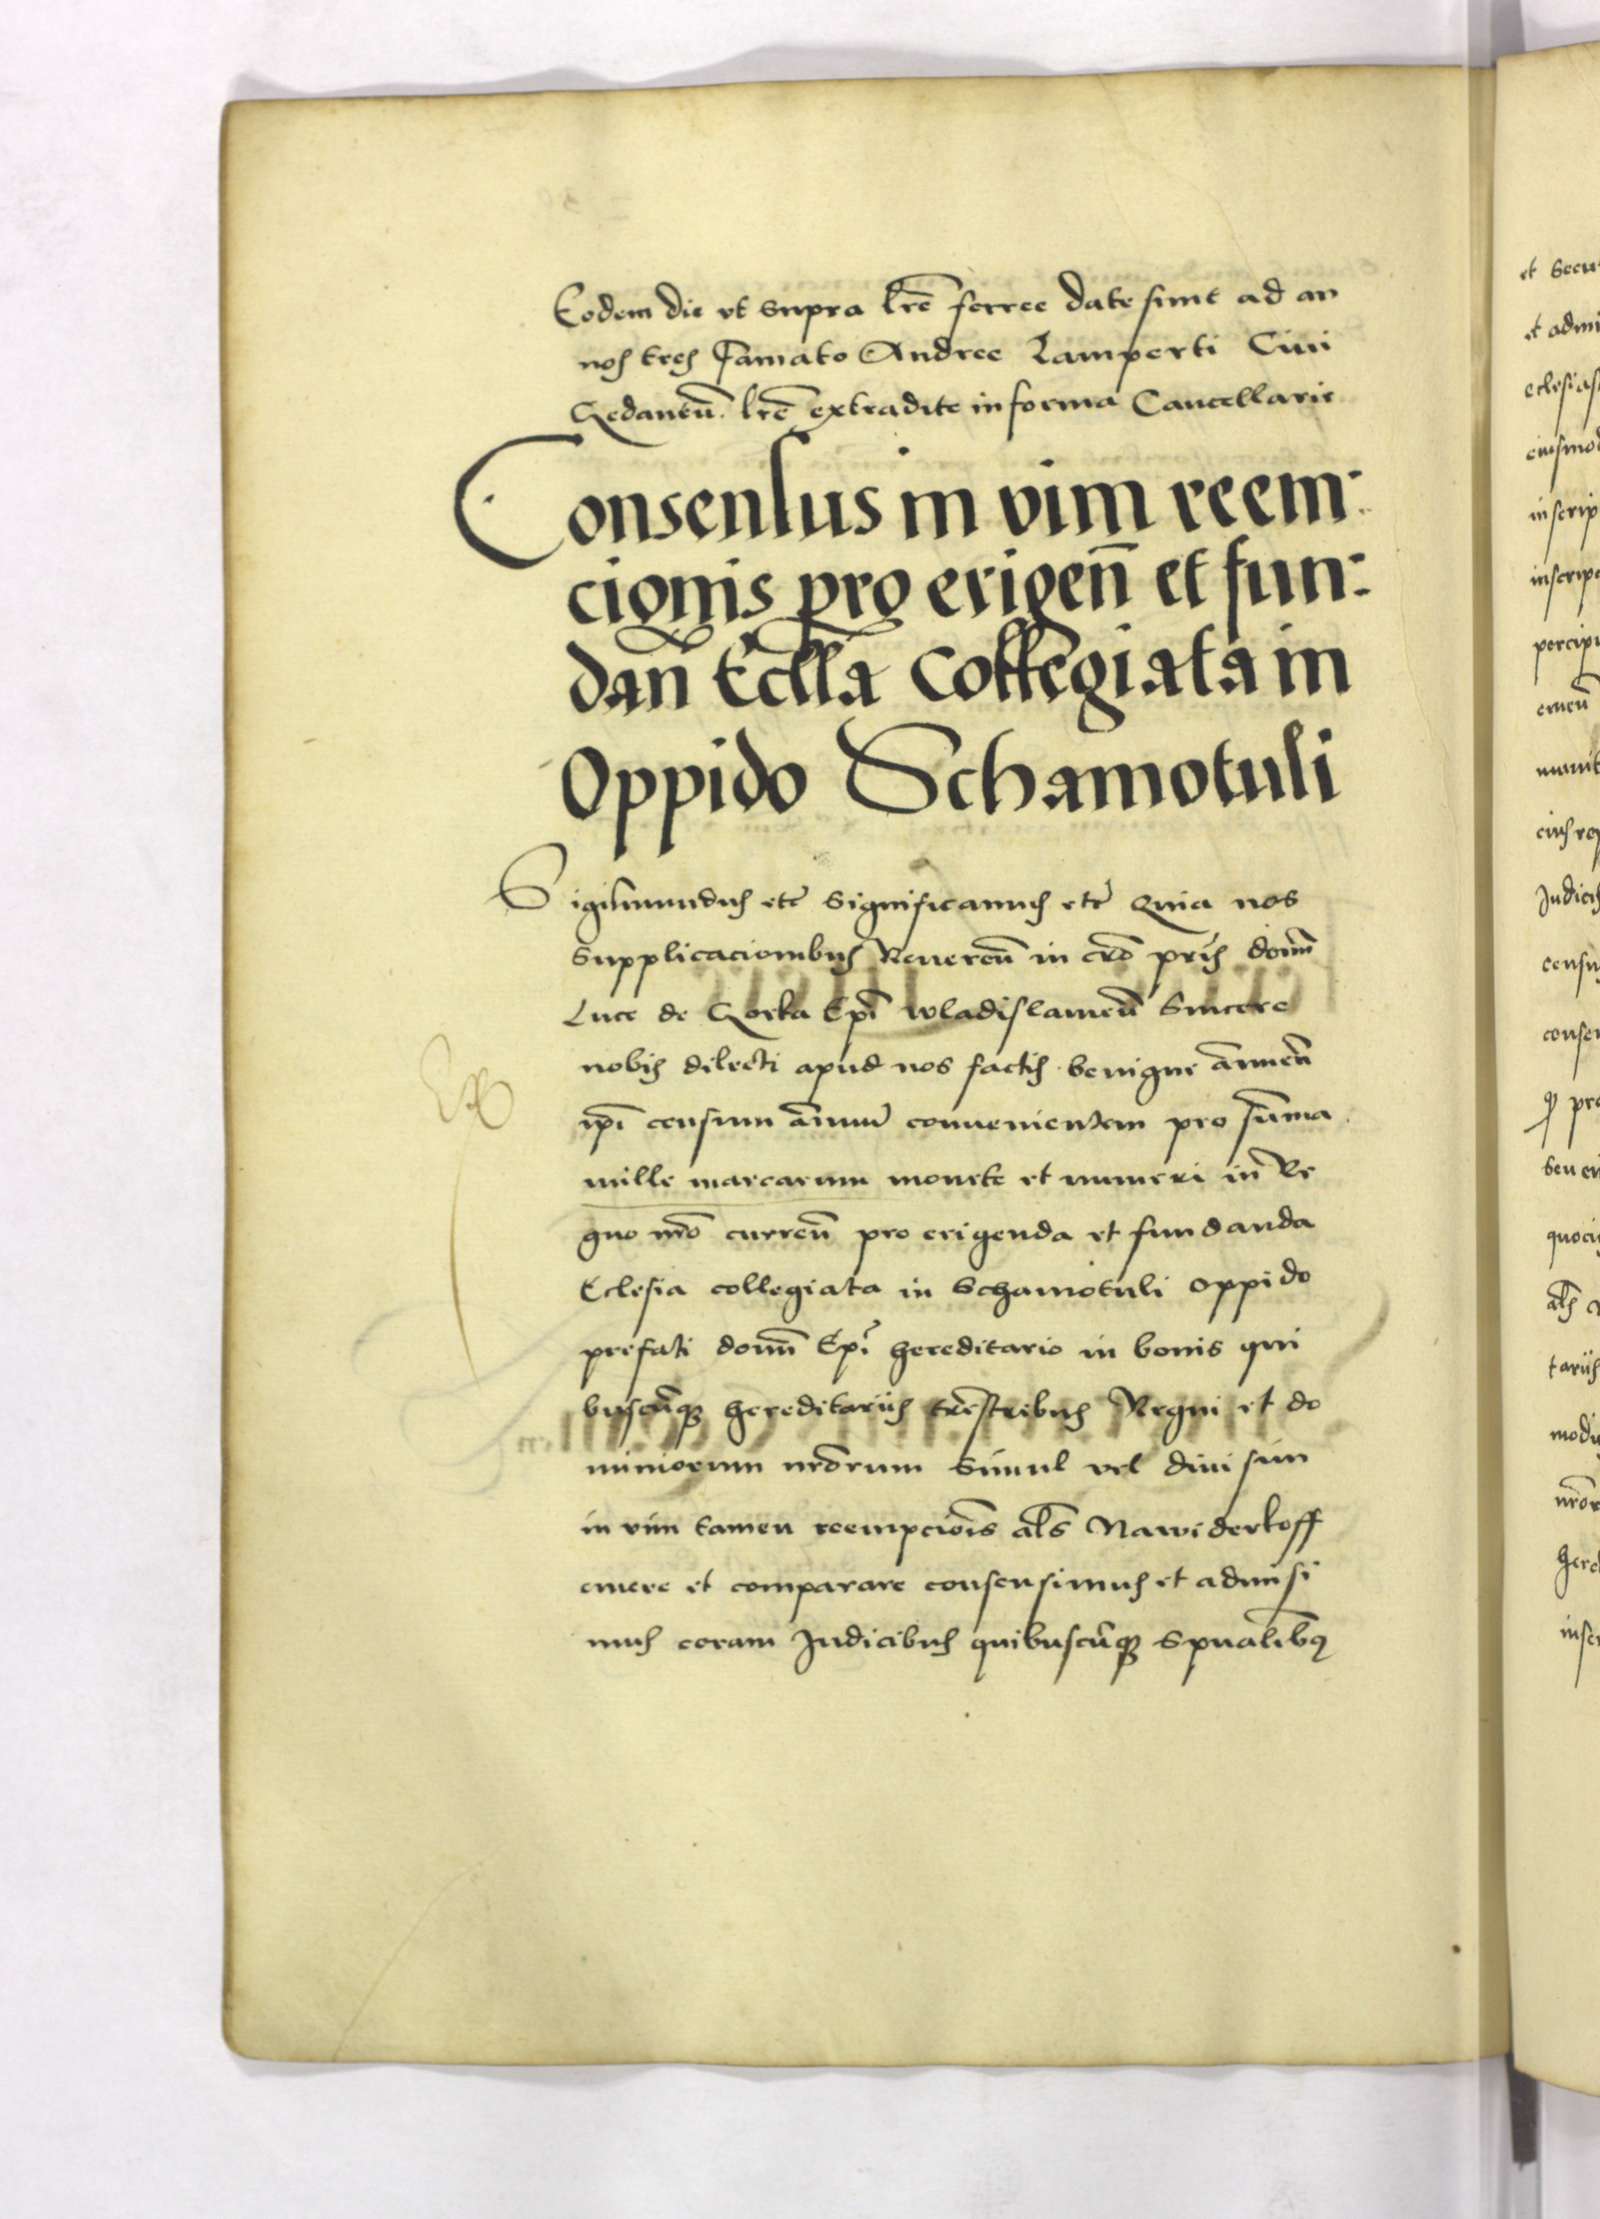 Eodem die vt supra lrē ferree date sunt ad an
nos tres Famato Andree Lamperti Ciui
Gedaneñ. lrē extradite in forma Cancellarie
Consensus in vim reem:
cionis pro erigeñ et fun:
dañ Ecllā Collegiata in
Oppido Schamotuli
Sigismundus etc̄ Significamus etc̄ Quia nos
Supplicacionibus Reuereñ in cro prīs domī
Luce de Gorka Ep̄i wladislauieñ Sincere
nobis dilecti apud nos factis benigne ānueñ
ip̄i censum ānuū conuenientem pro sūma
mille marcarum monete et numeri in Re
gno nrō curreñ pro erigenda et fundanda
Eclesia collegiata in Schamotuli oppido
prefati domī Ep̄i hereditario in bonis qui
buscūqꝫ hereditariis tr̄estribus Regni et do
miniorum nrōrum Simul vel diuisim
in vim tamen reempciōis al̄s Nawiderkoff
emere et comparare consensimus et admisi
mus coram Judicibus quibuscūqꝫ Spualibꝰ
et secu
et admi
eclesias
eiusmod
inscrip
inscrip
percipi
emeñ
munit
eius req
Judiciis
censu
conse
pro
seu
quoci
al̄s
tariis
modu
nrōr
here
inser